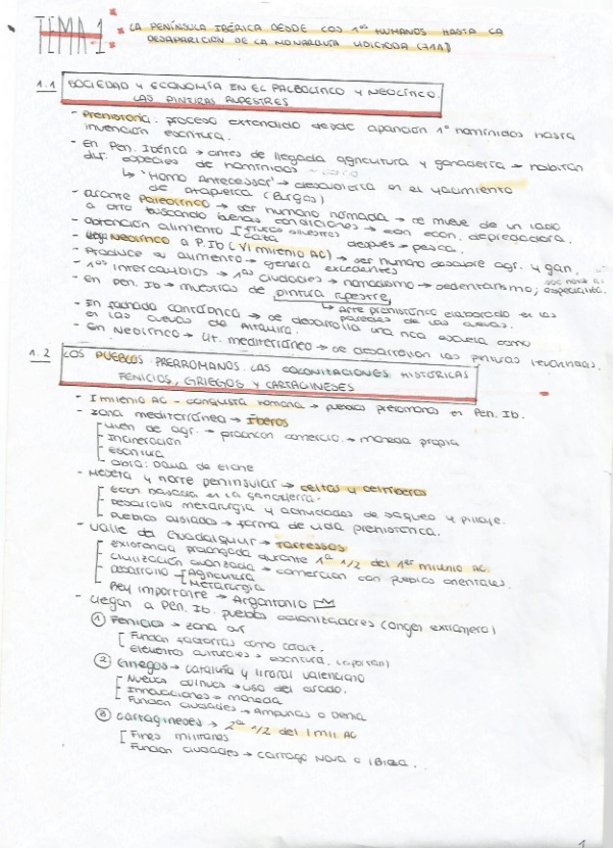 TEMA 1
LA PENÍNSULA IBÉRICA DESDE LOS 1os HUMANOS HASTA LA
DESAPARICIÓN DE LA MONARQUÍA VISIGODA (711)
1.1 SOCIEDAD Y ECONOMÍA EN EL PALEOLÍTICO Y NEOLÍTICO.
LAS PINTURAS RUPESTRES
- Prehistoria: proceso extendido desde aparición 1os homínidos hasta
invención escritura.
- en Pen. Ibérica → antes de llegada agricultura y ganadería → habitan
dif. especies de homínidos
↳ 'Homo Antecessor' → descubierta en el yacimiento
de Atapuerca (Burgos)
- durante Paleolítico → ser humano nómada → se mueve de un lado
a otro buscando buenas condiciones → econ. depredadora.
- obtención alimento frutos silvestres
caza después → pesca.
- llega Neolítico a P. Ib (VI milenio AC) → ser humano descubre agr. y gan.
- Produce su aumento → genera excedentes
- 1os intercambios → 1as ciudades → nomadismo → sedentarismo;
- en Pen. Ib → muestras de pintura rupestre
↳ Arte prehistórico elaborado en las
paredes de las cuevas.
- En fachada cantábrica → se desarrolla una rica escuela como
es las cuevas de Altamira.
- en Neolítico → Lit. mediterráneo → se desarrollan las pinturas levantinas.
1.2 LOS PUEBLOS PRERROMANOS. LAS COLONIZACIONES HISTÓRICAS
FENICIOS, GRIEGOS Y CARTAGINESES
- I milenio AC - conquista romana → pueblos prerromanos en Pen. Ib.
- Zona mediterránea → Íberos
viven de agr. → practican comercio → moneda propia
- Incineración
- escritura
- obra: Dama de Elche
- Meseta y norte peninsular → celtas y celtíberos
econ basada en la ganadería.
- Desarrollo metalurgia y actividades de saqueo y pillaje.
- Pueblos aislados → forma de vida prehistórica.
- valle del Guadalquivir → Tartessos
existencia prolongada durante 1ª 1/2 del 1er milenio AC
- civilización avanzada → comercian con pueblos orientales.
- Desarrollo Agricultura
Metalurgia
Rey importante → Argantonio
- llegan a Pen. Ib. pueblos colonizadores (origen extranjero)
① Fenicios → zona sur
Fundan factorías como
elementos culturales → escritura. (aportan)
② Griegos → Cataluña y litoral valenciano
Nuevos cultivos → uso del arado.
- Innovaciones → moneda
Fundan ciudades → Ampurias o Denia
③ Cartagineses → 2ª 1/2 del I mil AC
Fines militares
Fundan ciudades → Cartago Nova o Ibiza.
1